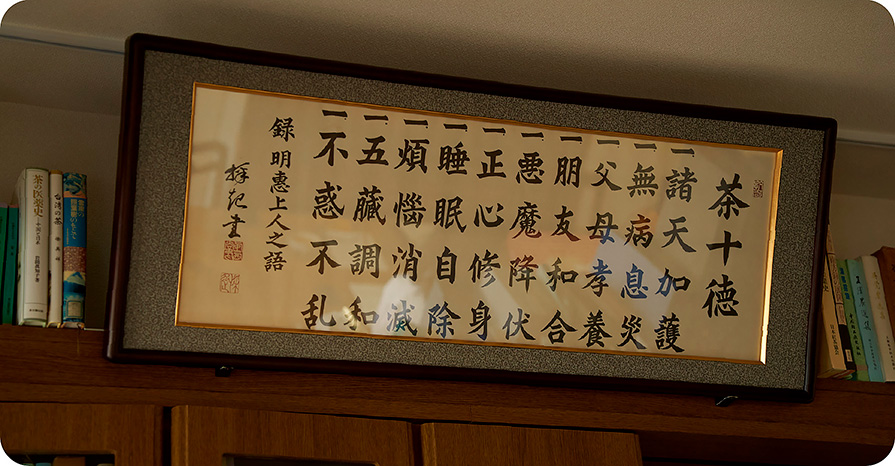 茶十徳
一諸天加護
一無病息災
一父母孝養
一朋友和合
一悪魔降伏
一正心修身
一睡眠自除
一煩悩消滅
一五臓調和
一不惑不乱
録明惠上人之語
茶の医薬史
台湾の茶